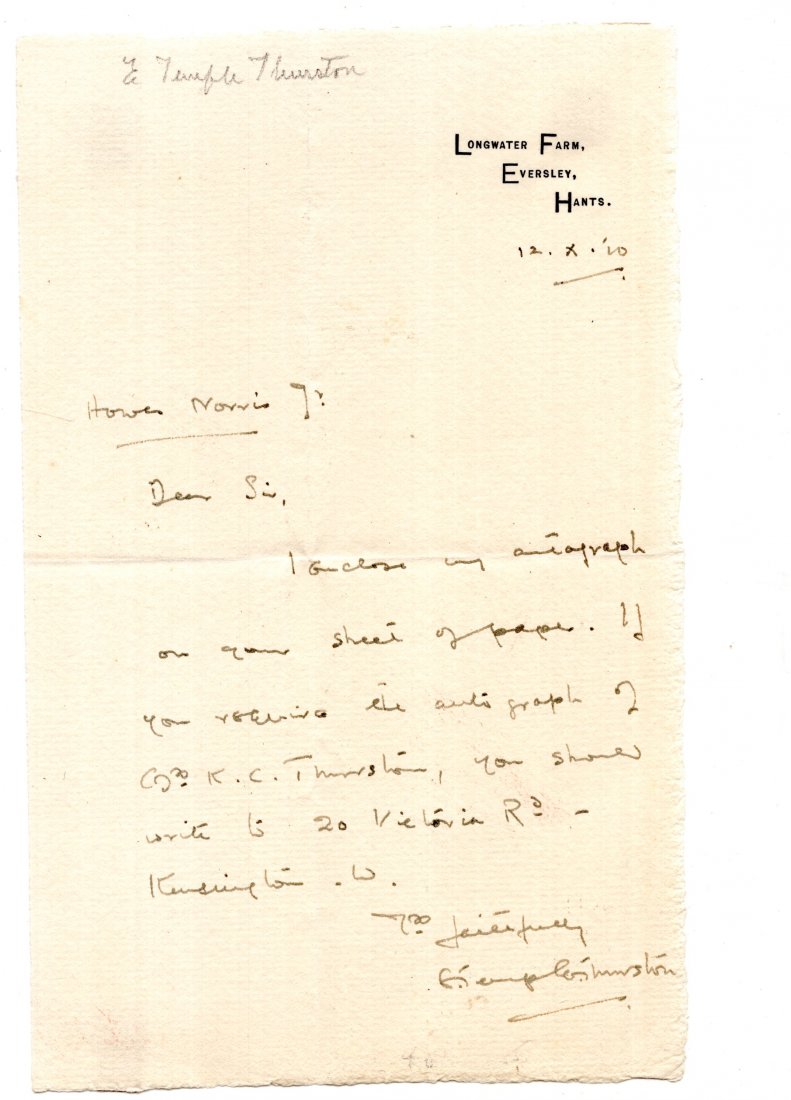 E Temple Thurston
LONGWATER FARM,
EVERSLEY,
HANTS.
12. X. '10
Howes Norris Jr
Dear Sir,
I enclose my autograph
on your sheet of paper. If
you require the autograph of
Mrs K. C. Thurston, you should
write to 20 Victoria Rd -
Kensington. W.
Yrs faithfully
E. Temple Thurston